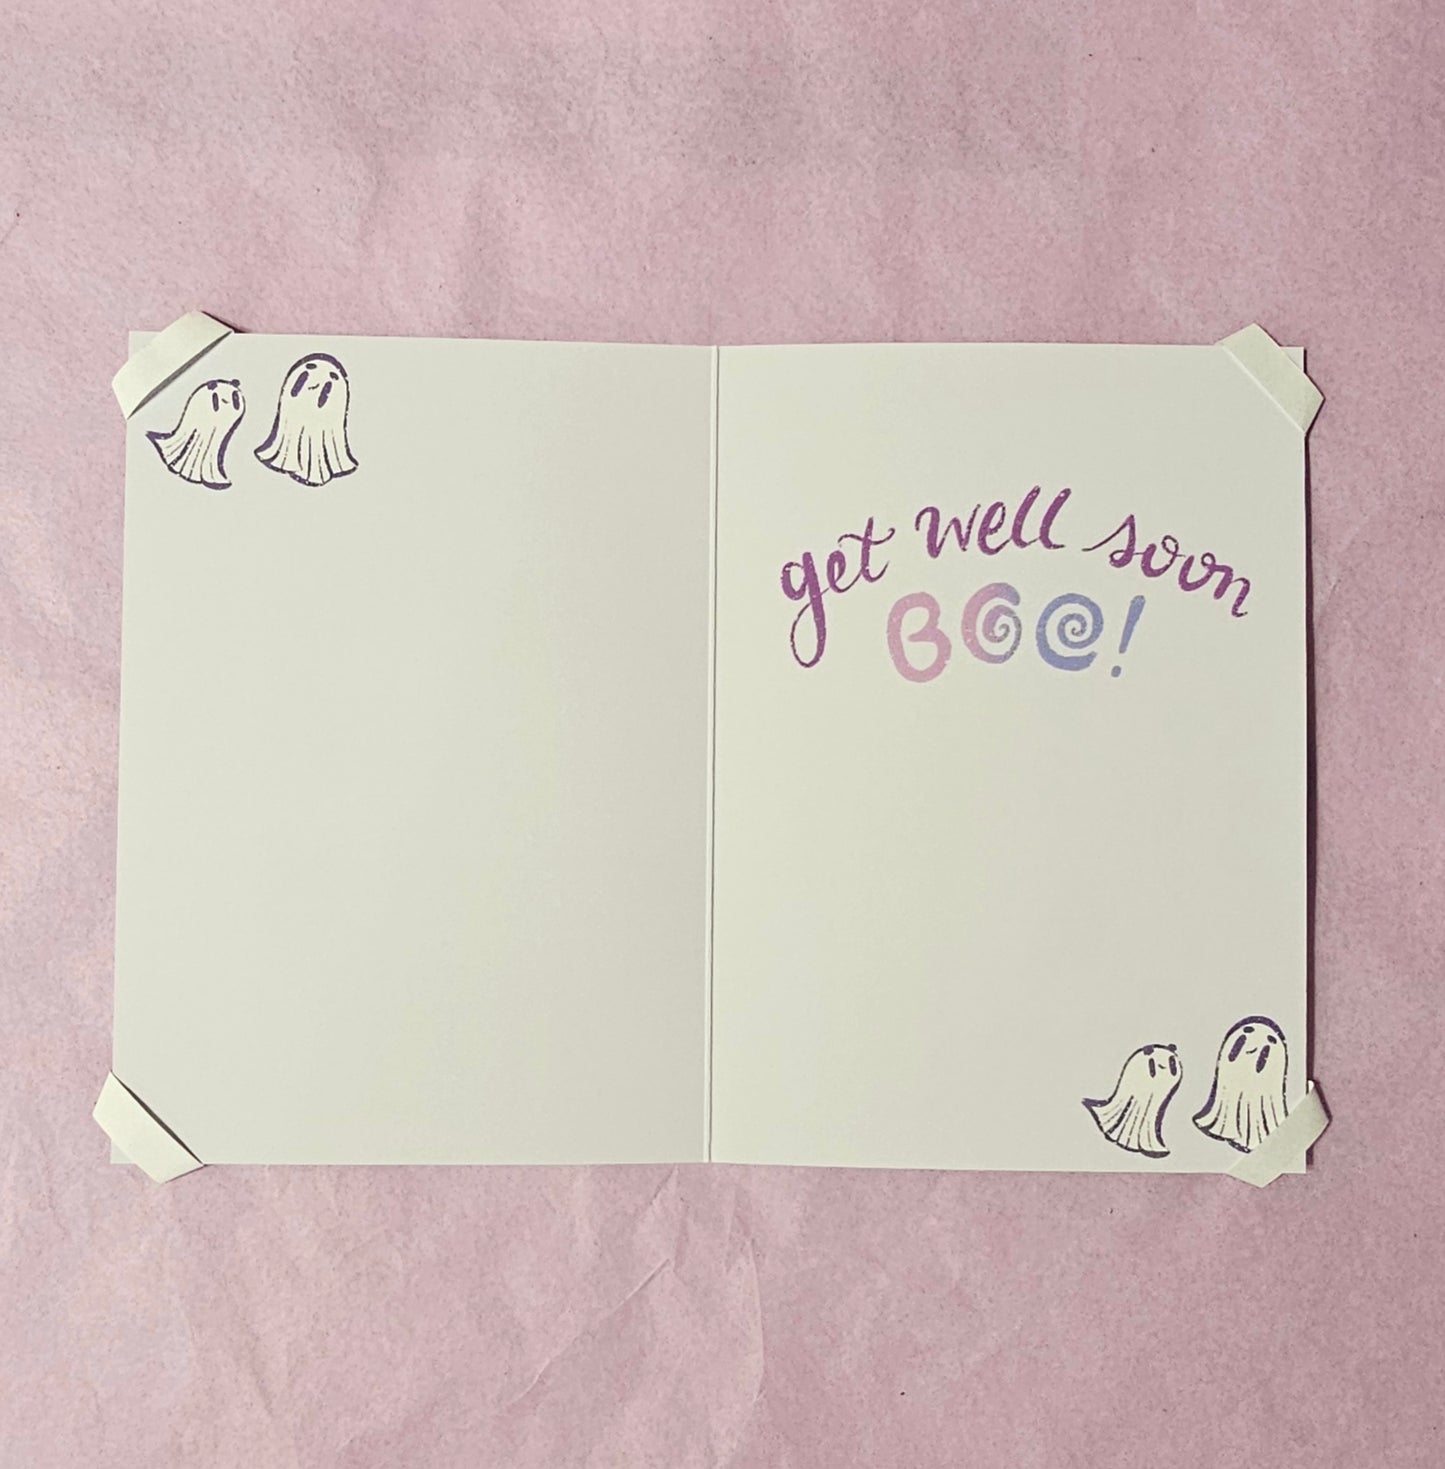 get well soon
BOO!